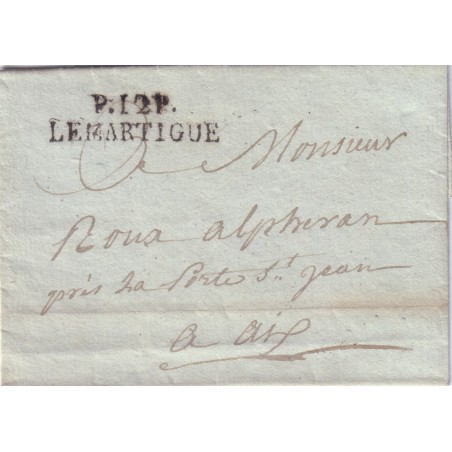 P.12P.
LEMARTIGUE
A Monsieur
Roux alpheran
près La Porte St. jean
a aix